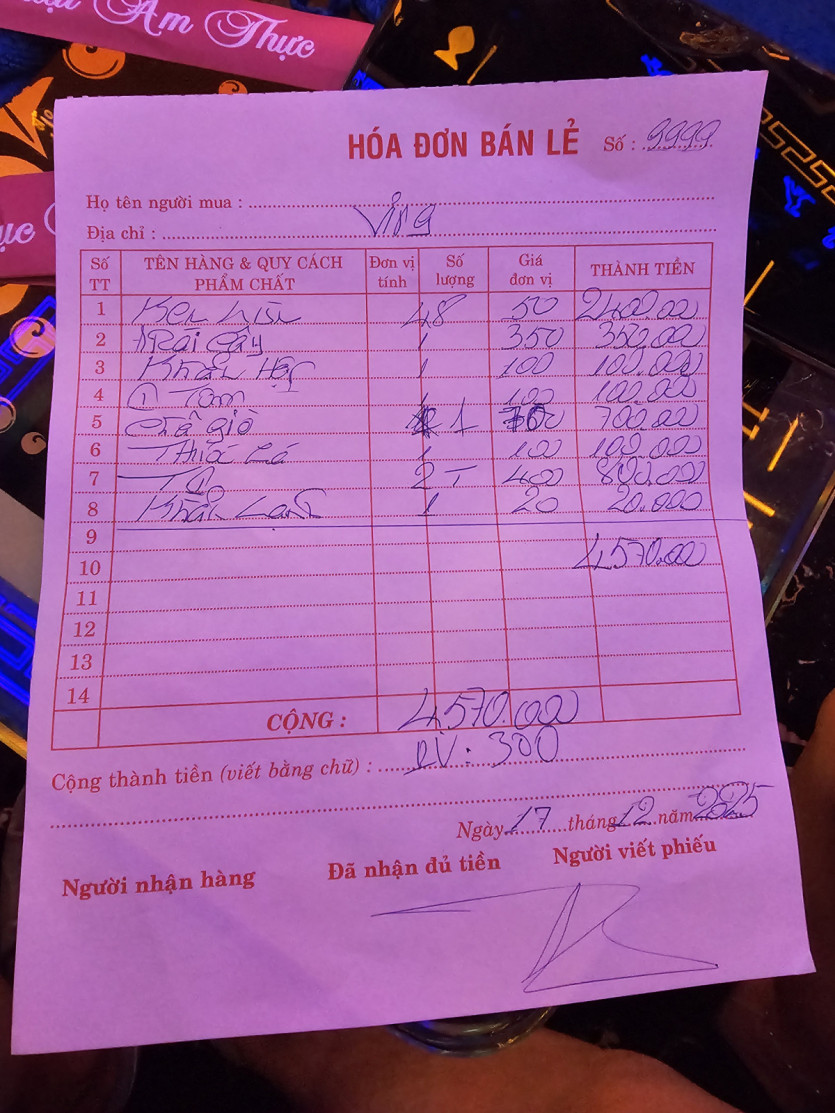 Ẩm Thực
HÓA ĐƠN BÁN LẺ Số : 9999
Họ tên người mua :
Địa chỉ :
Số TT TÊN HÀNG & QUY CÁCH PHẨM CHẤT Đơn vị tính Số lượng Giá đơn vị THÀNH TIỀN
1 Ken 48 50 2400.000
2 Trái Cây 1 350 350.000
3 Khăn Hộp 1 100 100.000
4 1 100 100.000
5 Chả giò 1 700 700.000
6 Thuốc Lá 1 100 100.000
7 2 T 400 800.000
8 Khăn Lạnh 1 20 20.000
9
10 4570.000
11
12
13
14
CỘNG : 4.570.000
Cộng thành tiền (viết bằng chữ) : DV : 300
Ngày 17 tháng 12 năm 2025
Người nhận hàng Đã nhận đủ tiền Người viết phiếu